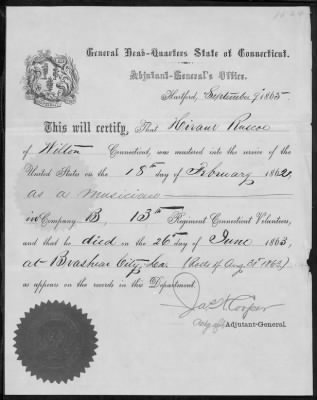 General Head-Quarters State of Connecticut.
Adjutant-General's Office.
Hartford, September 9th 1865
This will certify, That Hiram Ruscoe
of Wilton Connecticut, was mustered into the service of the
United States on the 18th day of February 1862
as a musician
in Company B, 13th Regiment Connecticut Volunteers,
and that he died on the 26th day of June 1863,
at Brashear City, La. (Rolls of Aug. 31st 1863)
as appears on the records in this Department.
Adjutant-General.